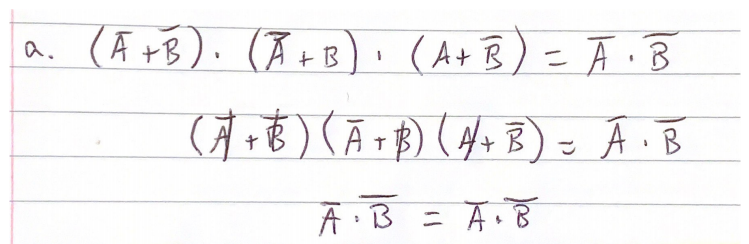 a. (A̅ + B̅) · (A̅ + B) · (A + B̅) = A̅ · B̅
(A̅ + B̅)(A̅ + B)(A + B̅) = A̅ · B̅
A̅ · B̅ = A̅ · B̅